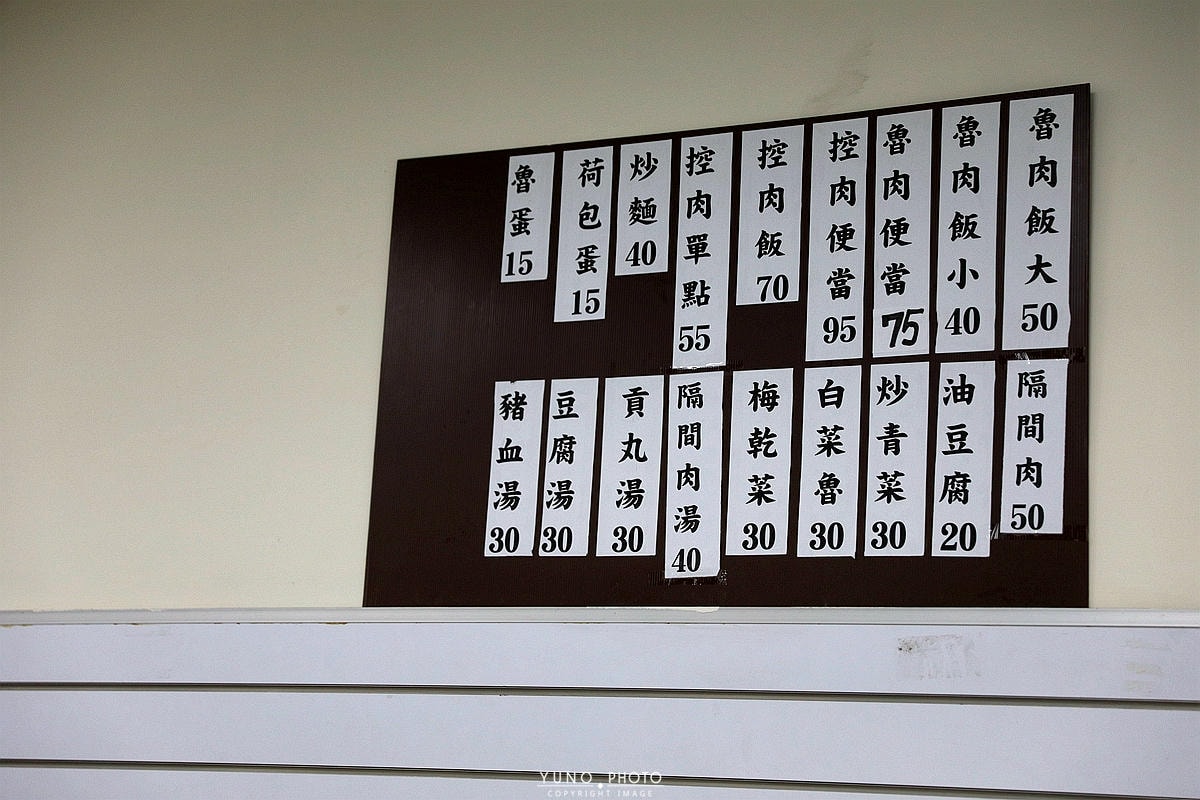 魯肉飯大50
魯肉飯小40
魯肉便當75
控肉便當95
控肉飯70
控肉單點55
炒麵40
荷包蛋15
魯蛋15
隔間肉50
油豆腐20
炒青菜30
白菜魯30
梅乾菜30
隔間肉湯40
貢丸湯30
豆腐湯30
豬血湯30
YUNO PHOTO
COPYRIGHT IMAGE